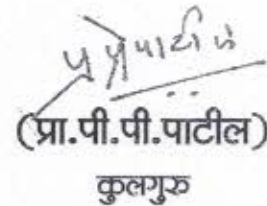 (प्रा.पी.पी.पाटील)
कुलगुरु